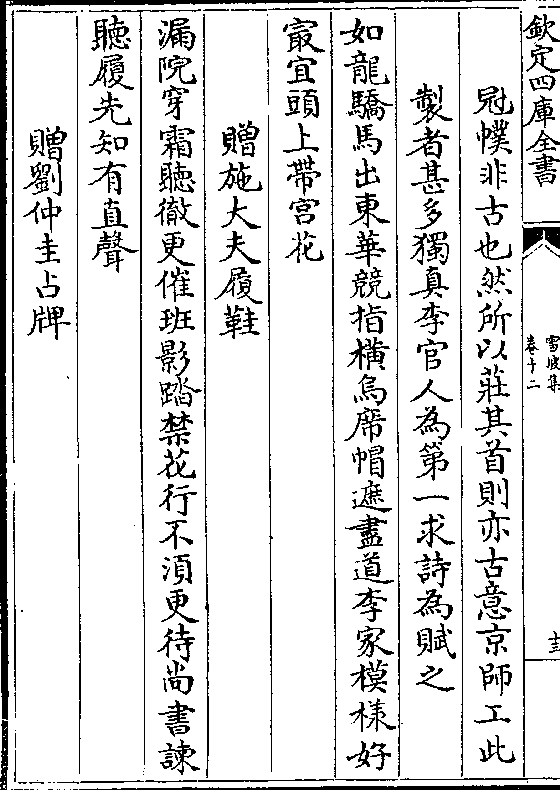 欽定四庫全書
雪坡集
卷十二
十三
冠幞非古也然所以莊其首則亦古意京師工此
製者甚多獨真李官人為第一求詩為賦之
如龍驕馬出東華競指橫烏席帽遮盡道李家模樣好
㝡宜頭上帶宫花
贈施大夫履鞋
漏院穿霜聽徹更催班影踏禁花行不須更待尚書諫
聽履先知有直聲
贈劉仲圭占牌